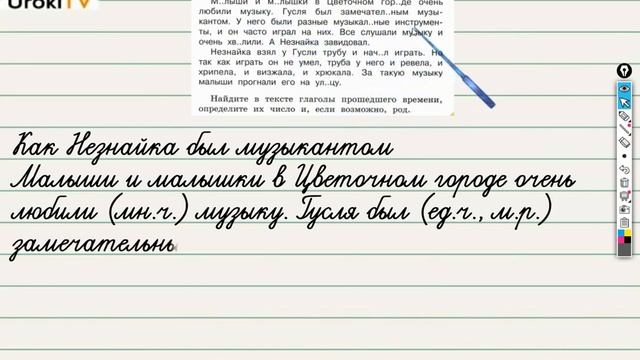 UrokiTV
М..лыши и м..лышки в Цветочном гор..де очень
любили музыку. Гусля был замечател..ным музы-
кантом. У него были разные музыкал..ные инструмен-
ты, и он часто играл на них. Все слушали музыку и
очень хв..лили. А Незнайка завидовал.
Незнайка взял у Гусли трубу и нач..л играть. Но
так как играть он не умел, труба у него и ревела, и
хрипела, и визжала, и хрюкала. За такую музыку
малыши прогнали его на ул..цу.
Найдите в тексте глаголы прошедшего времени,
определите их число и, если возможно, род.
Как Незнайка был музыкантом
Малыши и малышки в Цветочном городе очень
любили (мн.ч.) музыку. Гусля был (ед.ч., м.р.)
замечательнь